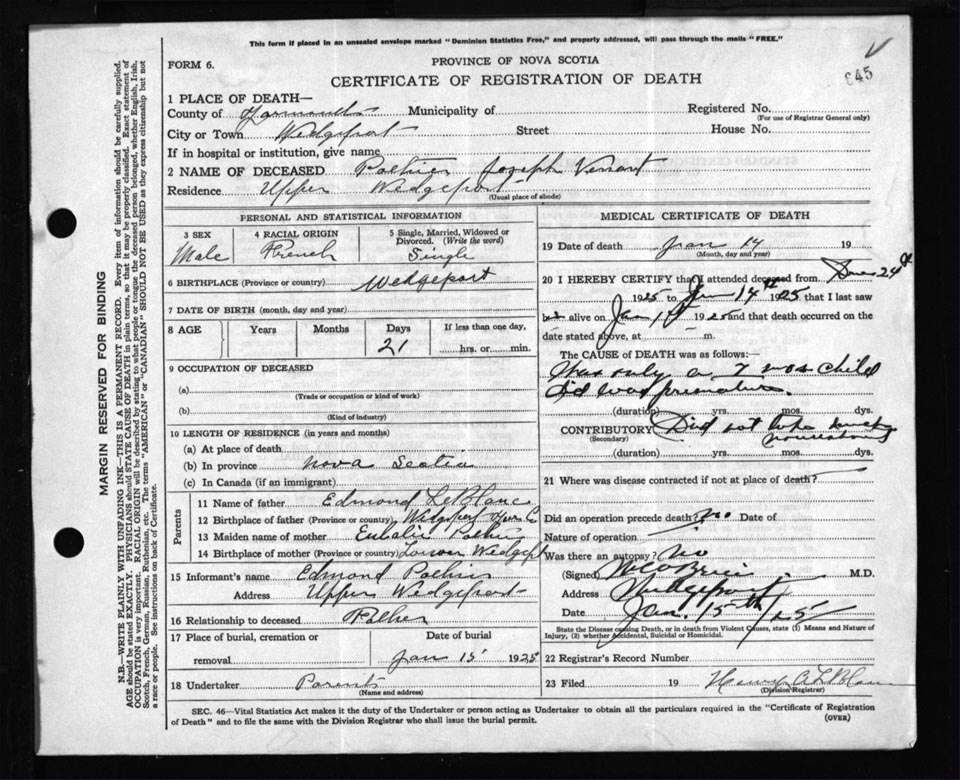 This form if placed in an unsealed envelope marked "Dominion Statistics Free," and properly addressed, will pass through the mails "FREE."
FORM 6.
PROVINCE OF NOVA SCOTIA
645
CERTIFICATE OF REGISTRATION OF DEATH
1 PLACE OF DEATH—
County of Yarmouth Municipality of Registered No.
(For use of Registrar General only)
City or Town Wedgeport Street House No.
If in hospital or institution, give name
2 NAME OF DECEASED Pothier Joseph Vinsant
Residence Upper Wedgeport
(Usual place of abode)
PERSONAL AND STATISTICAL INFORMATION
3 SEX 4 RACIAL ORIGIN 5 Single, Married, Widowed or Divorced. (Write the word)
Male French Single
6 BIRTHPLACE (Province or country) Wedgeport
7 DATE OF BIRTH (month, day and year)
8 AGE Years Months Days If less than one day,
21 hrs. or min.
9 OCCUPATION OF DECEASED
(a)
(Trade or occupation or kind of work)
(b)
(Kind of industry)
10 LENGTH OF RESIDENCE (in years and months)
(a) At place of death
(b) In province Nova Scotia
(c) In Canada (if an immigrant)
Parents
11 Name of father Edmond LeBlanc
12 Birthplace of father (Province or country) Wedgeport
13 Maiden name of mother Eulalie Pothier
14 Birthplace of mother (Province or country) Lower Wedgept
15 Informant's name Edmond Pothier
Address Upper Wedgeport
16 Relationship to deceased Father
17 Place of burial, cremation or Date of burial
removal Jan 15 1925
18 Undertaker Parents
(Name and address)
MEDICAL CERTIFICATE OF DEATH
19 Date of death Jan 14 19
(Month, day and year)
20 I HEREBY CERTIFY that I attended deceased from 24th
1925 to Jan 14th 1925 that I last saw
alive on Jan 1925 and that death occurred on the
date stated above, at m.
The CAUSE of DEATH was as follows:
Was only a 7 mos child
did was premature
(duration) yrs. mos. dys.
CONTRIBUTORY Did not take much
(Secondary) nourishment
(duration) yrs. mos. dys.
21 Where was disease contracted if not at place of death?
Did an operation precede death? no Date of
Nature of operation
Was there an autopsy? no
(Signed) M.D.
Address Wedgeport
Date Jan. 15th /25
State the Disease causing Death, or in death from Violent Causes, state (1) Means and Nature of
Injury, (2) whether Accidental, Suicidal or Homicidal.
22 Registrar's Record Number
23 Filed 19 Henry A LeBlanc
(Division Registrar)
SEC. 46—Vital Statistics Act makes it the duty of the Undertaker or person acting as Undertaker to obtain all the particulars required in the "Certificate of Registration
of Death" and to file the same with the Division Registrar who shall issue the burial permit.
(OVER)
MARGIN RESERVED FOR BINDING
N.B.—WRITE PLAINLY WITH UNFADING INK—THIS IS A PERMANENT RECORD. Every item of information should be carefully supplied.
AGE should be stated EXACTLY. PHYSICIANS should STATE CAUSE OF DEATH in plain terms, so that it may be properly classified. Exact statement of
OCCUPATION is very important. RACIAL ORIGIN will be described by stating to what people or tongue the deceased person belonged, whether English, Irish,
Scotch, French, German, Russian, Ruthenian, etc. The terms "AMERICAN" or "CANADIAN" SHOULD NOT BE USED as they express citizenship but not
a race or people. See instructions on back of Certificate.